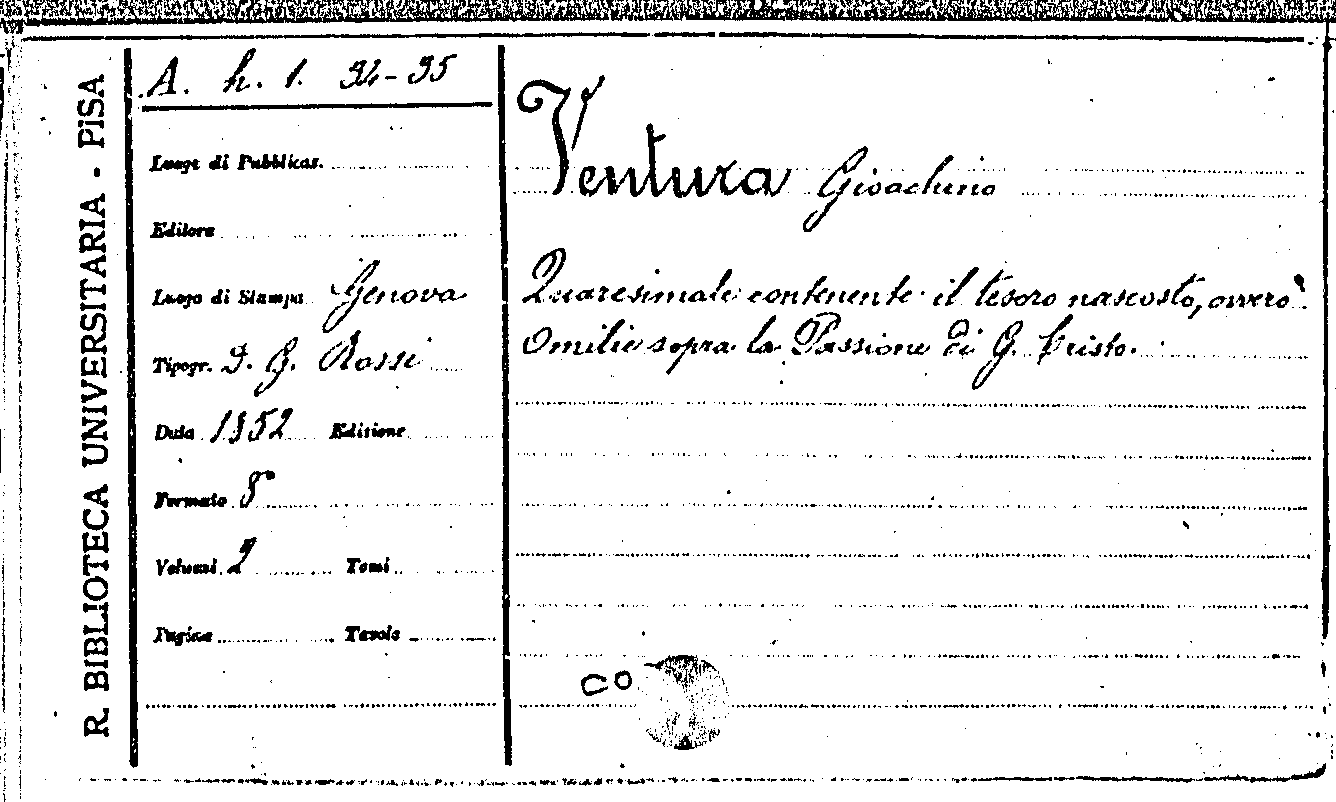 R. BIBLIOTECA UNIVERSITARIA - PISA
A. h. 1. 34-35
Luogo di Pubblicaz.
Editore
Luogo di Stampa Genova
Tipogr. D. G. Rossi
Data 1852 Edizione
Formato 8°
Volumi 2 Tomi
Pagine Tavole
Ventura Gioachino
Quaresimale contenente il tesoro nascosto, ovvero
Omilie sopra la Passione di G. Cristo.
CO